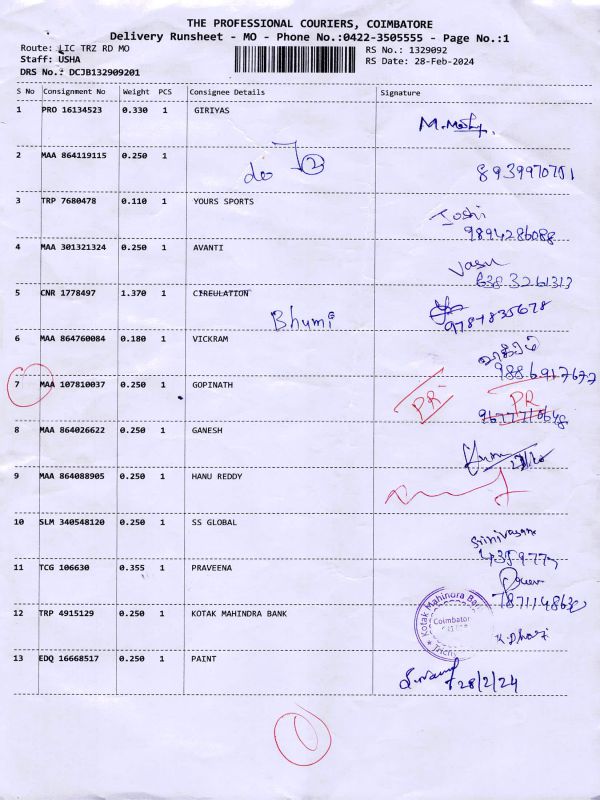 THE PROFESSIONAL COURIERS, COIMBATORE
Delivery Runsheet - MO - Phone No.:0422-3505555 - Page No.:1
Route: LIC TRZ RD MO RS No.: 1329092
Staff: USHA RS Date: 28-Feb-2024
DRS No.: DCJB132909201
S No Consignment No Weight PCS Consignee Details Signature
1 PRO 16134523 0.330 1 GIRIYAS
2 MAA 864119115 0.250 1 do 2 8939970751
3 TRP 7680478 0.110 1 YOURS SPORTS Joshi
9894286088
4 MAA 301321324 0.250 1 AVANTI Vasu
638 3261313
5 CNR 1778497 1.370 1 CIREULATION
Bhumi 9787835678
6 MAA 864760084 0.180 1 VICKRAM
9886917677
7 MAA 107810037 0.250 1 GOPINATH PR PR
8 MAA 864026622 0.250 1 GANESH
9 MAA 864088905 0.250 1 HANU REDDY
10 SLM 340548120 0.250 1 SS GLOBAL Srinivasan
11 TCG 106630 0.355 1 PRAVEENA
12 TRP 4915129 0.250 1 KOTAK MAHINDRA BANK Kotak Mahindra Bank
Coimbator
Trichy
13 EDQ 16668517 0.250 1 PAINT
28/2/24